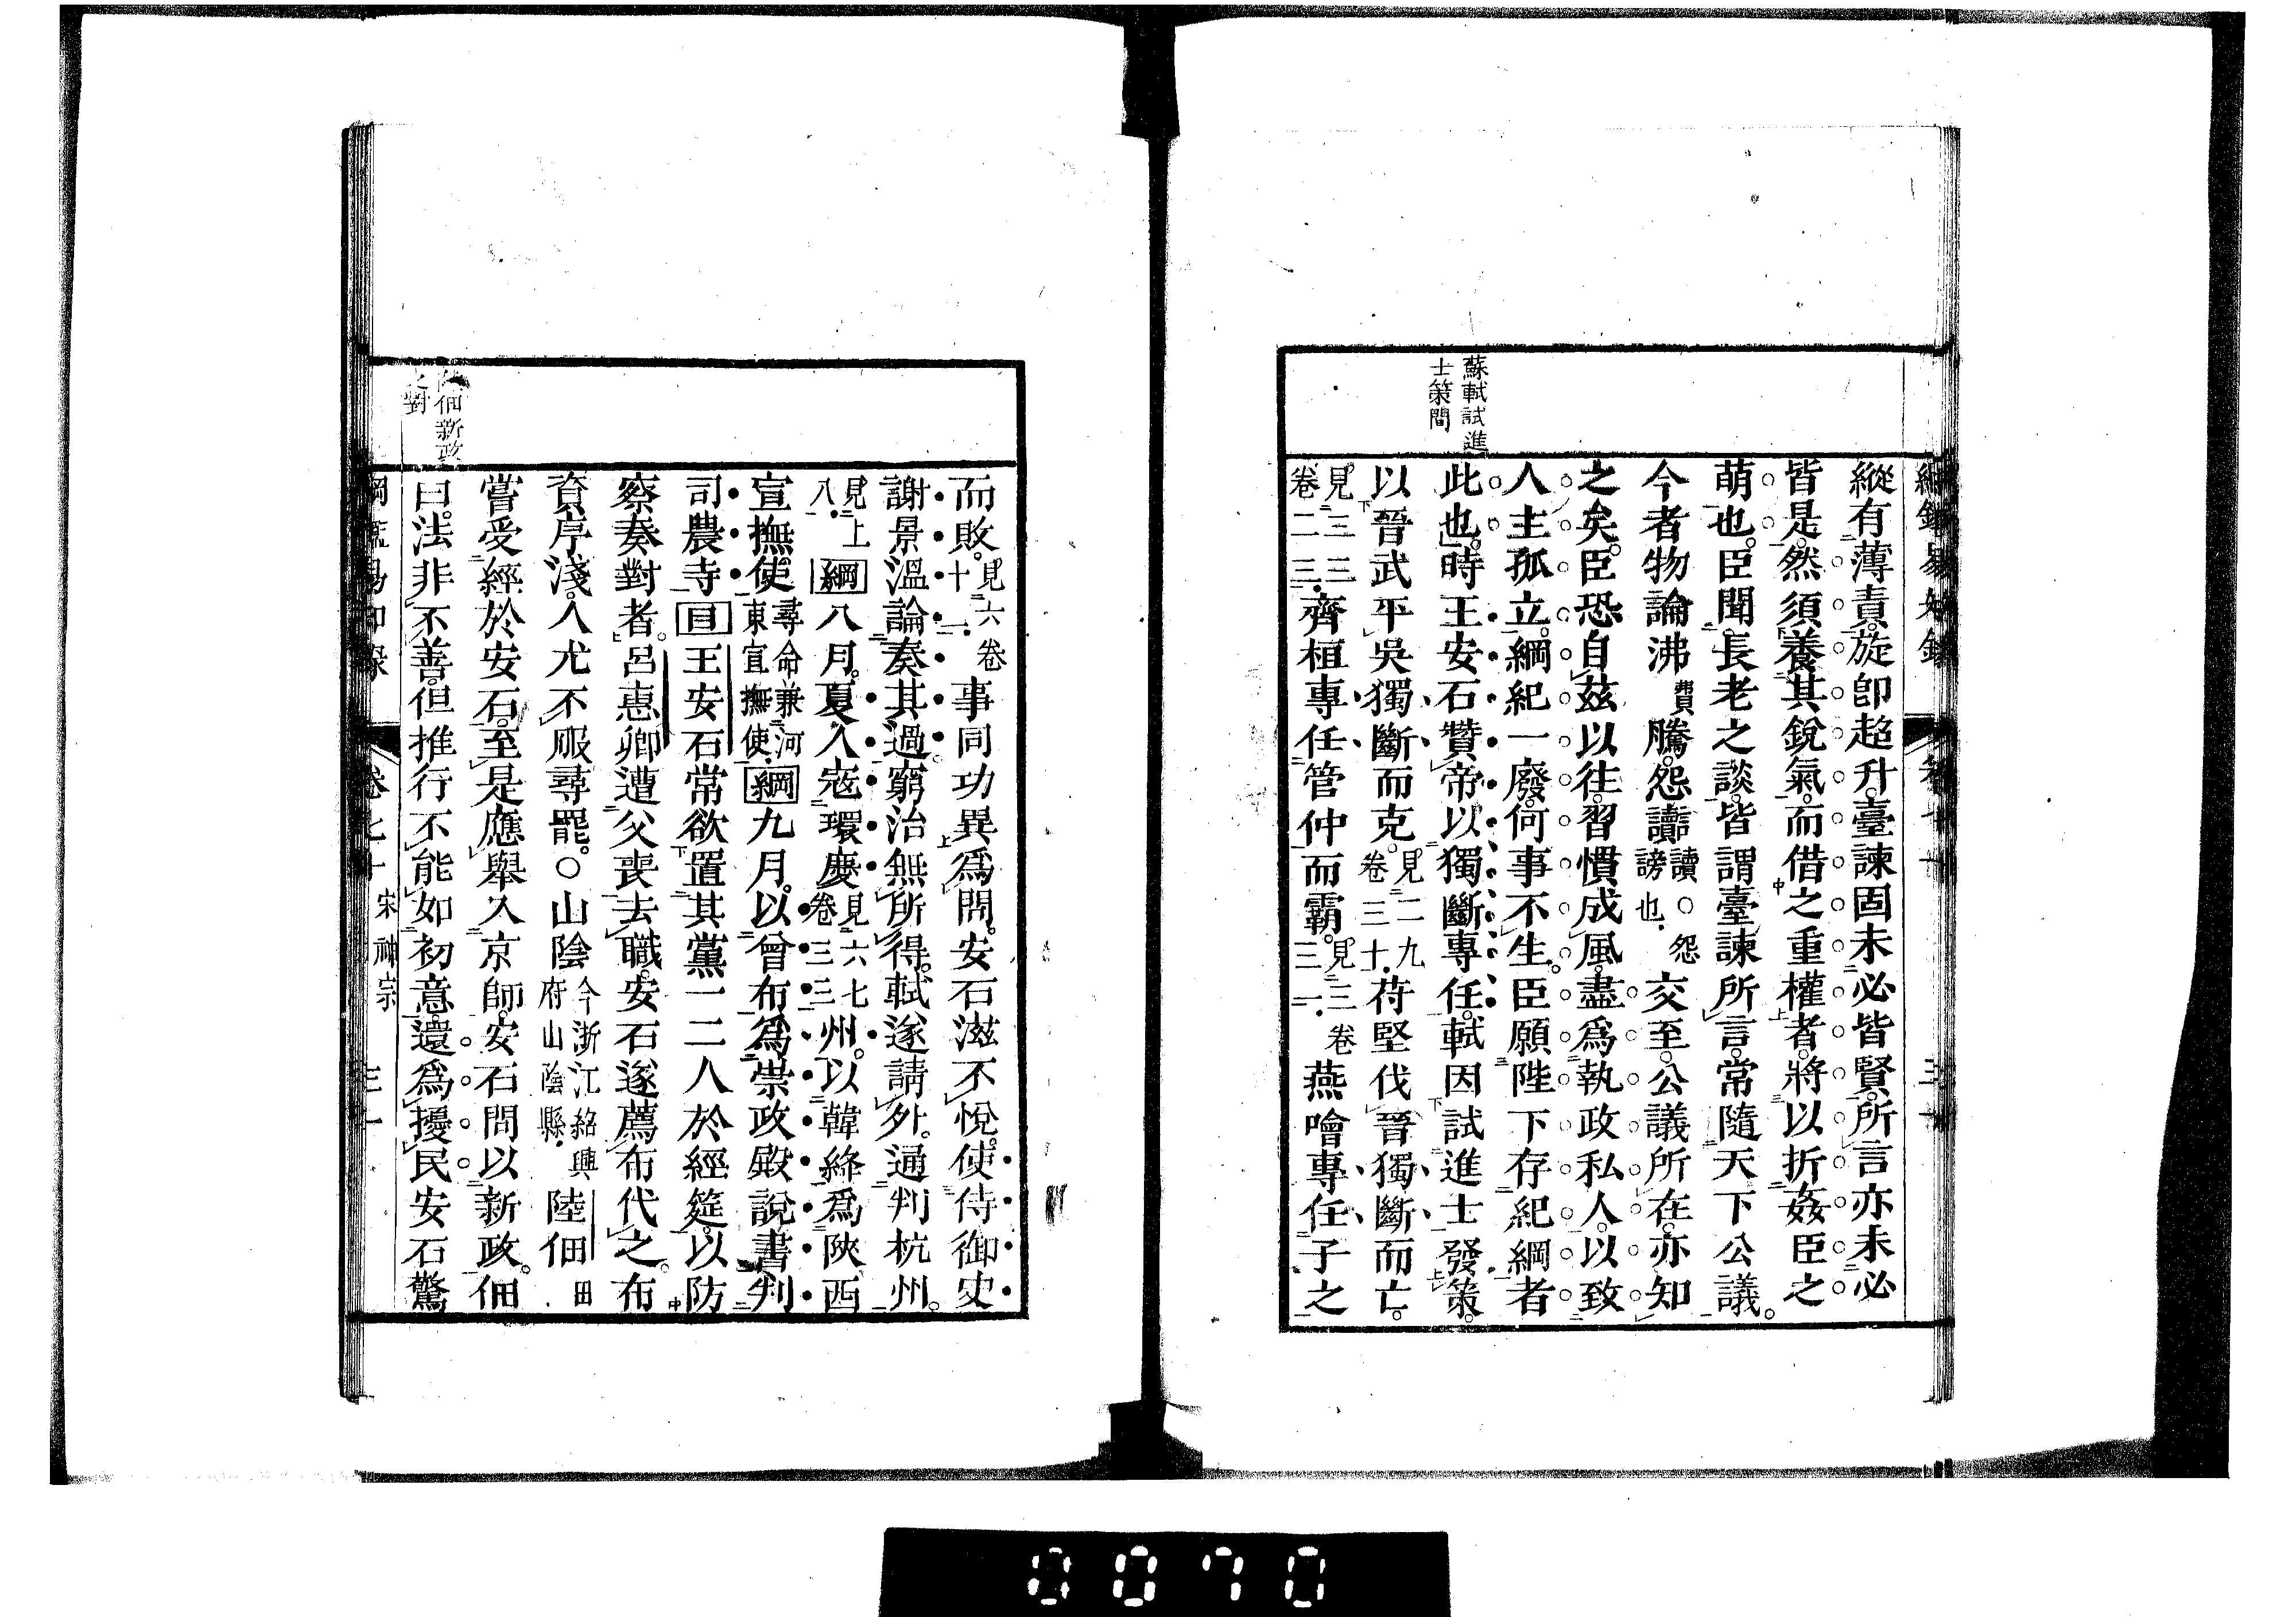 蘇軾試進
士策問
縱有薄責。旋卽超升。臺諫固未必皆賢。所言亦未必
皆是。然須養其銳氣。而借之重權者。將以折姦臣之
萌也。臣聞長老之談。皆謂臺諫所言。常隨天下公議。
今者物論沸費騰。怨讟讀○怨謗也。交至。公議所在。亦知
之矣。臣恐自茲以往。習慣成風。盡爲執政私人。以致
人主孤立。綱紀一廢。何事不生。臣願陛下存紀綱者
此也。時王安石贊帝以獨斷專任。軾因試進士發策。
以晉武平吳獨斷而克。見二九卷三十。苻堅伐晉獨斷而亡。
見三三卷二三。齊桓專任管仲而霸。見三卷三一。燕噲專任子之
而敗。見六卷十一。事同功異爲問。安石滋不悅。使侍御史
謝景溫論奏其過。窮治無所得。軾遂請外。通判杭州。
見上八。綱八月。夏人寇環慶見六七卷三三州。以韓絳爲陝西
宣撫使。尋命兼河東宣撫使。綱九月。以曾布爲崇政殿說書判
司農寺目王安石常欲置其黨一二人於經筵。以防
察奏對者。呂惠卿遭父喪去職。安石遂薦布代之。布
資序淺。人尤不服尋罷。○山陰今浙江紹興府山陰縣。陸佃田
嘗受經於安石。至是應舉入京師。安石問以新政。佃
曰。法非不善。但推行不能如初意。還爲擾民安石驚
佃新政
之對
綱鑑易知錄 卷七十 宋神宗
0070